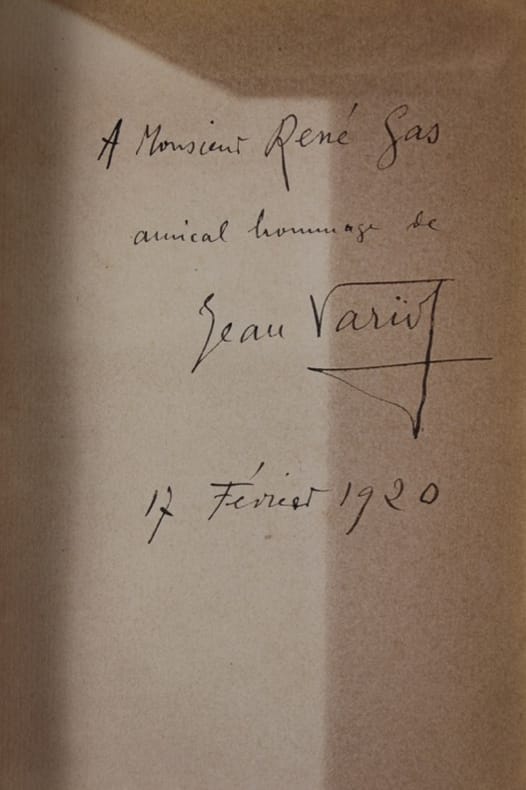 A Monsieur René Gas
amical hommage de
Jean Variot
17 Février 1920